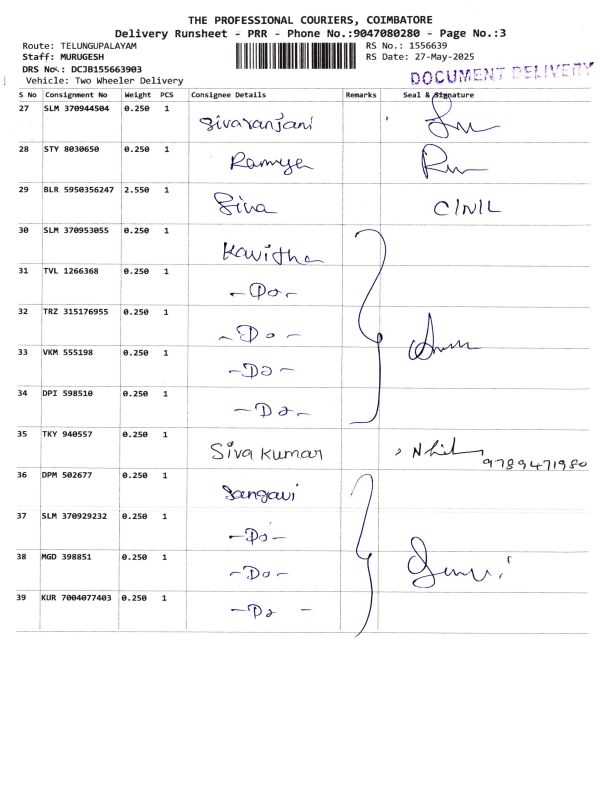 THE PROFESSIONAL COURIERS, COIMBATORE
Delivery Runsheet - PRR - Phone No.:9047080280 - Page No.:3
Route: TELUNGUPALAYAM RS No.: 1556639
Staff: MURUGESH RS Date: 27-May-2025
DRS No.: DCJB155663903
Vehicle: Two Wheeler Delivery DOCUMENT DELIVERY
S No Consignment No Weight PCS Consignee Details Remarks Seal & Signature
27 SLM 370944504 0.250 1 Sivaranjani
28 STY 8030650 0.250 1 Ramya
29 BLR 5950356247 2.550 1 Siva CINIL
30 SLM 370953055 0.250 1 Kavitha
31 TVL 1266368 0.250 1 -Do-
32 TRZ 315176955 0.250 1 -Do-
33 VKM 555198 0.250 1 -Do-
34 DPI 598510 0.250 1 -Do-
35 TKY 940557 0.250 1 Siva Kumar 9789471980
36 DPM 502677 0.250 1 Sangavi
37 SLM 370929232 0.250 1 -Do-
38 MGD 398851 0.250 1 -Do-
39 KUR 7004077403 0.250 1 -Do-